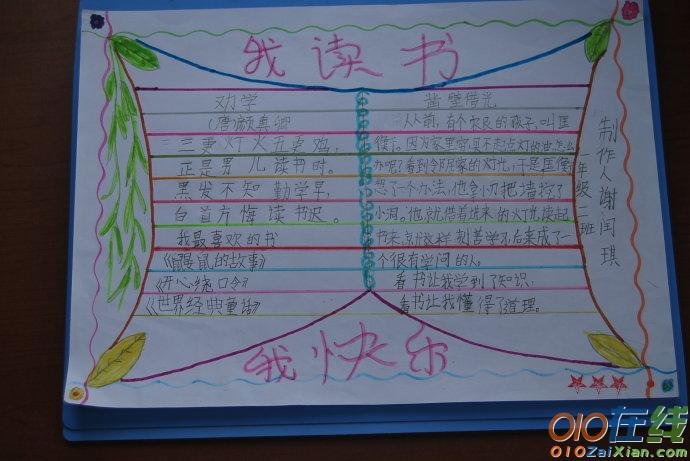 我读书
劝学
（唐颜真卿
三更灯火五更鸡，
正是男儿读书时。
黑发不知勤学早，
白首方悔读书迟。
我最喜欢的书
《鼹鼠的故事》
《开心绕口令》
《世界经典童话》
凿壁借光
从前，有个农民的孩子，叫匡
衡。因为家里穷买不起点灯的油怎么
办呢？看到邻居家的灯光，于是匡衡
想了一个办法，他拿小刀把墙挖了
小洞。他就借着进来的灯光读起
书来，就这样刻苦学后来成了一
个很有学问的人。
看书让我学到了知识，
看书让我懂得了道理。
制作人谢闫琪
年级二班
我快乐
010在线
010ZaiXian.com